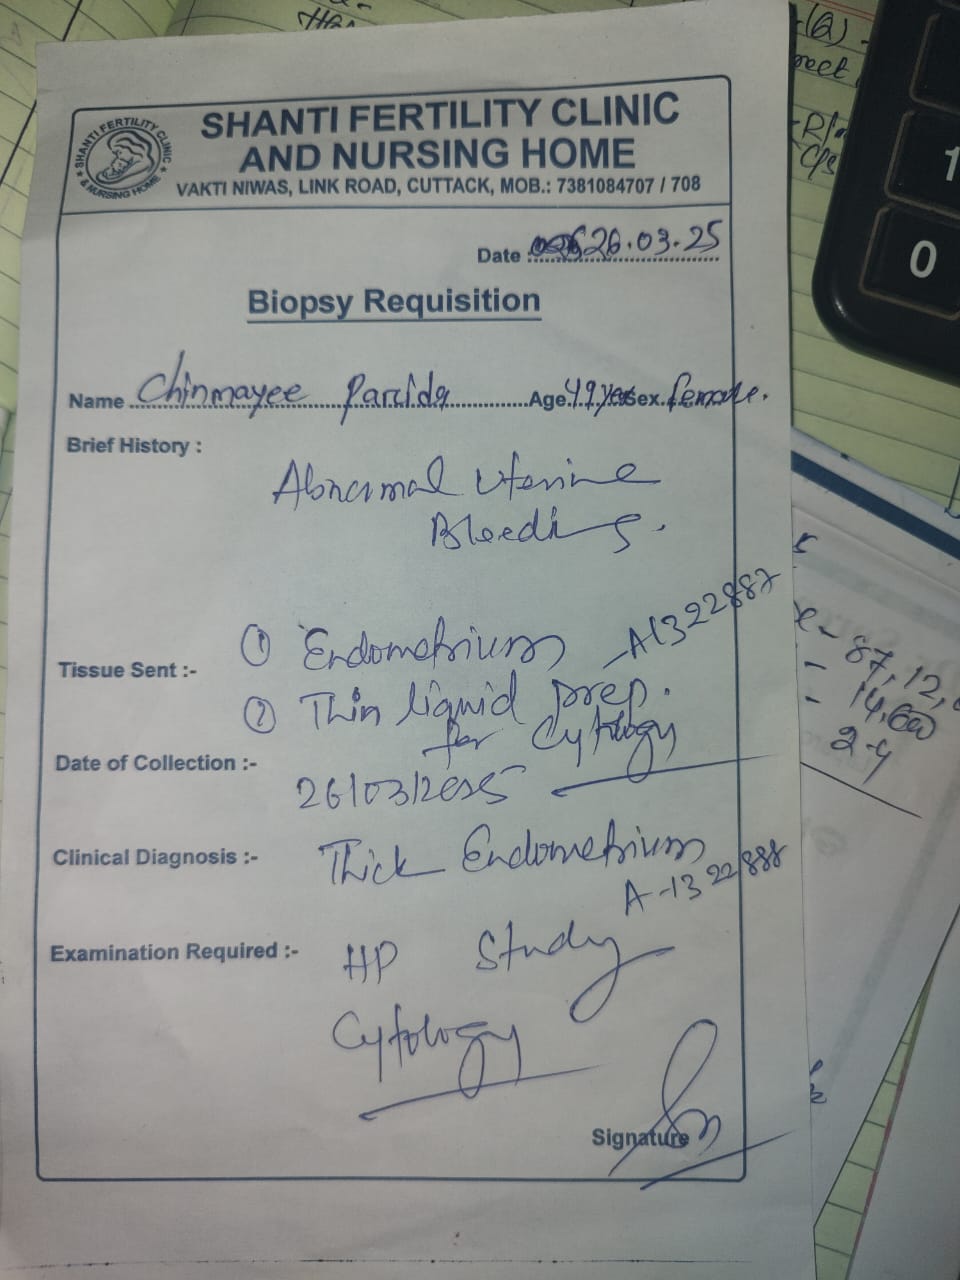 SHANTI FERTILITY CLINIC
AND NURSING HOME
VAKTI NIWAS, LINK ROAD, CUTTACK, MOB.: 7381084707 / 708
SHANTI FERTILITY CLINIC & NURSING HOME
Date 26.03.25
Biopsy Requisition
Name Chinmayee Parida Age 49 yrs Sex. female.
Brief History :
Abnormal Uterine
Bleeding.
Tissue Sent :- ① Endometrium - A1322887
② Thin liquid prep.
for Cytology
Date of Collection :-
26/03/2025
Clinical Diagnosis :- Thick Endometrium
A-1322888
Examination Required :- HP Study
Cytology
Signature
1
0
87,12,
14,600
2-4